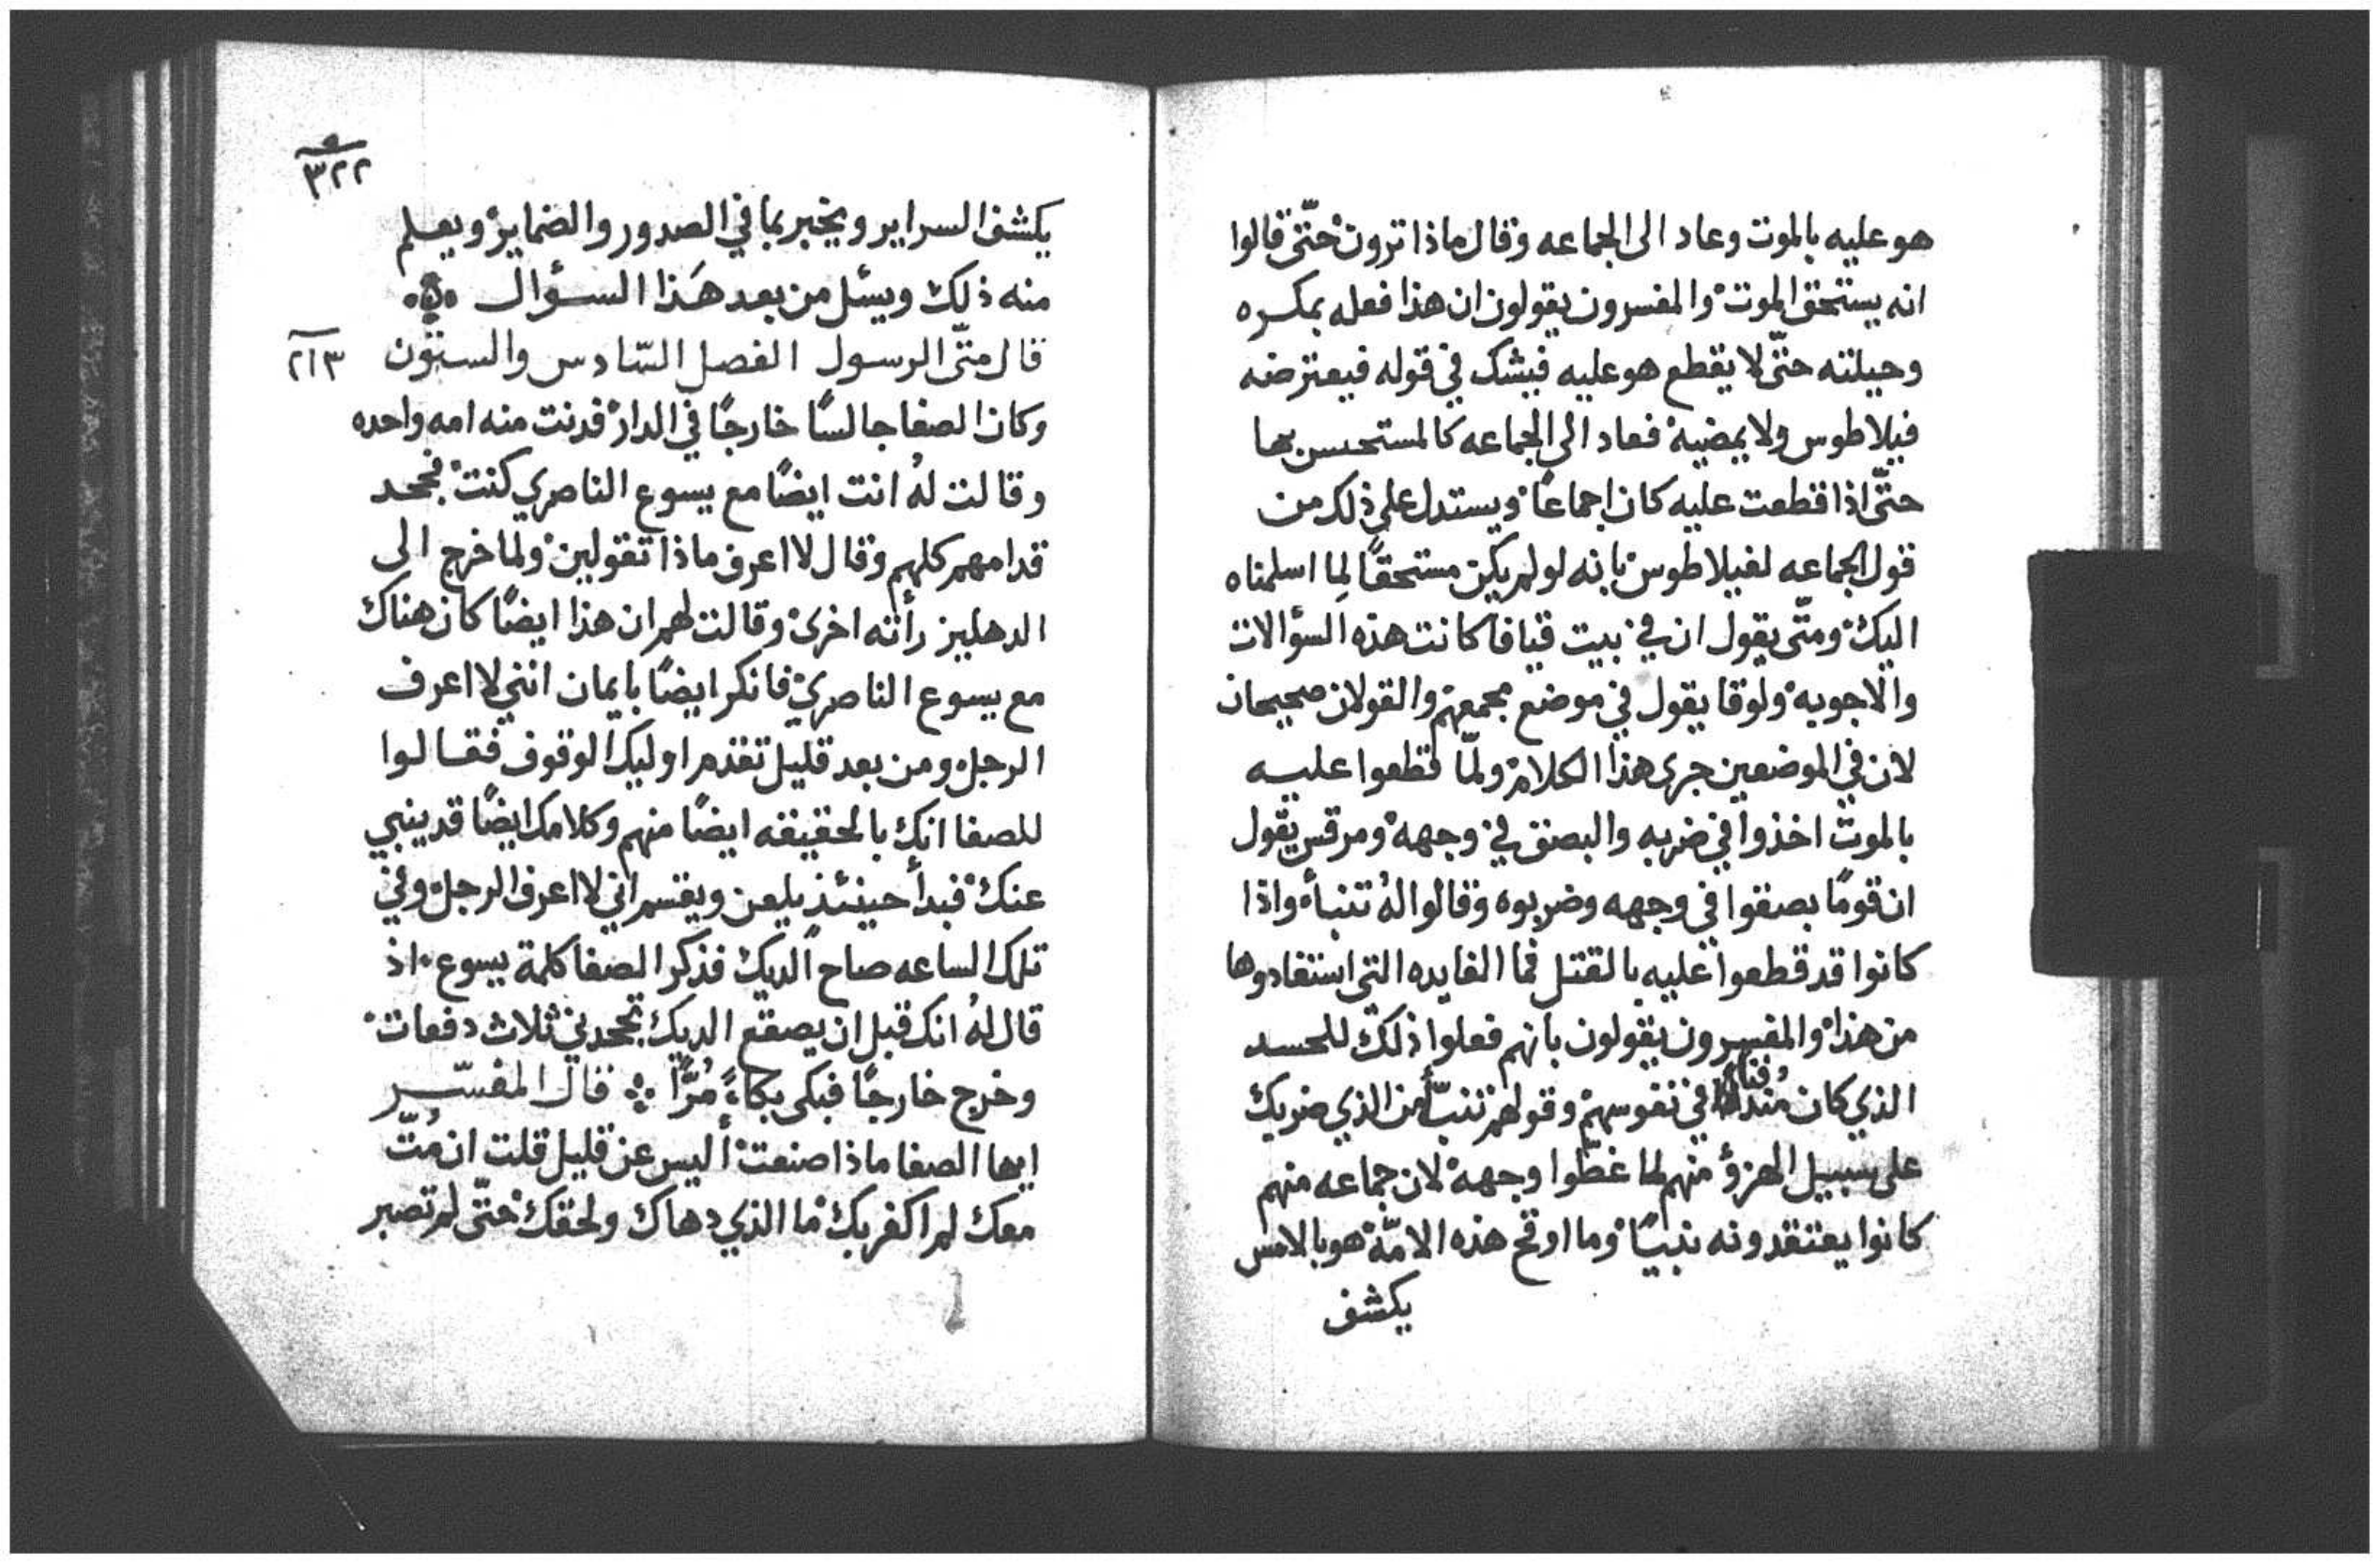 هو عليه بالموت وعاد الى الجماعه وقال ماذا ترون حتّى قالوا
انه يستحق الموت والمفسرون يقولون ان هذا فعله بمكره
وحيلته حتّى لا يقطع هو عليه فيشك في قوله فيعترضه
فيلاطوس ولا يمضيه فعاد الى الجماعه كالمستحسن بها
حتّى اذا قطعت عليه كان اجماعًا ويستدل على ذلك من
قول الجماعه لفيلاطوس بانه لو لم يكن مستحقًا لِما اسلمناه
اليك ومتّى يقول ان في بيت قيافا كانت هذه السؤالات
والاجوبه ولوقا يقول في موضع مجمعهم والقولان صحيحان
لان في الموضعين جرى هذا الكلام ولمّا قطعوا عليه
بالموت اخذوا في ضربه والبصق في وجهه ومرقس يقول
ان قومًا بصقوا في وجهه وضربوه وقالوا لهُ تنبأ واذا
كانوا قد قطعوا عليه بالقتل فما الفايده التى استفادوها
من هذا والمفسرون يقولون بانهم فعلوا ذلك للحسد
الذي كان في نفوسهم وقولهم تنبّأ من الذي ضربك
على سبيل الهزؤ منهم لما غطّوا وجهه لان جماعه منهم
كانوا يعتقدونه نبيًا وما اوقح هذه الامّة هو بالامس
يكشف
٣٢٢
يكشف السراير ويخبر بما في الصدور والضماير ويعلم
منه ذلك ويسئل من بعد هَذا السؤال
قال متّى الرسول الفصل السّادس والستّون
٢١٣
وكان الصفا جالسًا خارجًا في الدار فدنت منه امه واحده
وقالت لهُ انت ايضًا مع يسوع الناصري كنت فجحد
قدامهم كلهم وقال لا اعرف ماذا تقولين ولما خرج الى
الدهليز رأته اخرى وقالت لهم ان هذا ايضًا كان هناك
مع يسوع الناصري فانكر ايضًا بايمان انني لا اعرف
الرجل ومن بعد قليل تقدم اوليك الوقوف فقالوا
للصفا انك بالحقيقه ايضًا منهم وكلامك ايضًا قد ينبي
عنك فبدأ حينئذٍ يلعن ويقسم اني لا اعرف الرجل وفي
تلك الساعه صاح الديك فذكر الصفا كلمة يسوع اذ
قال لهُ انك قبل ان يصقع الديك تجحدني ثلاث دفعات
وخرج خارجًا فبكى بكاءً مُرًّا قال المفسّر
ايها الصفا ماذا صنعت أليس عن قليل قلت ان مُتّ
معك لم اكفر بك ما الذي دهاك ولحقك حتّى لم تصبر